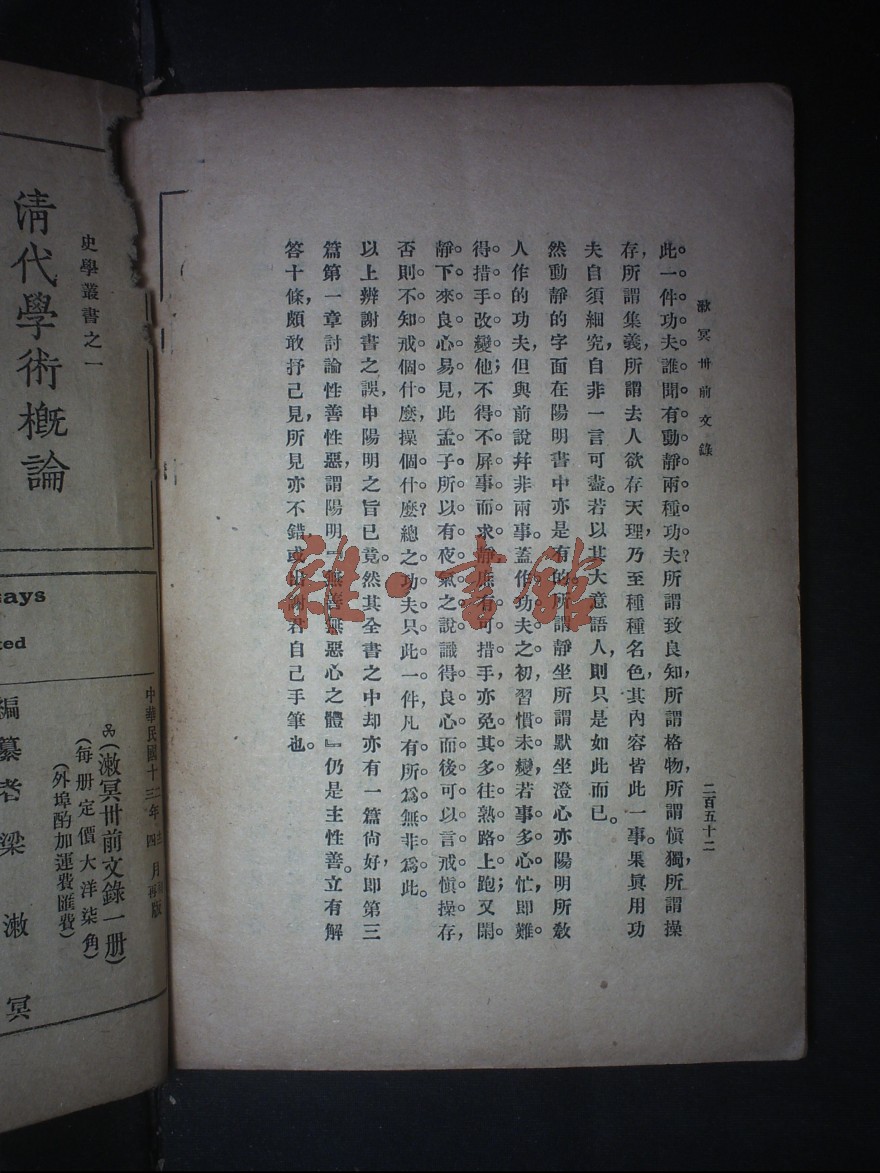 漱冥卅前文錄
二百五十二
此。一。件。功。夫。誰。聞。有。動。靜。兩。種。功。夫。?所謂致良知,所謂格物,所謂愼獨,所謂操
存,所謂集義,所謂去人欲存天理,乃至種種名色,其內容皆此一事。果眞用功
夫自須細究,自非一言可盡。若以其大意語人,則只是如此而已。
然動靜的字面在陽明書中亦是有的。所謂靜坐所謂默坐澄心亦陽明所敎
人作的功夫,但與前說幷非兩事。蓋作。功。夫。之。初,習。慣。未。變,若。事。多。心。忙,卽。難。
得。措。手。改。變。他;不。得。不。屏。事。而。求。靜。庶。有。可。措。手,亦。免。其。多。往。熟。路。上。跑;又。閒。
靜。下。來。良。心。易。見,此。孟。子。所。以。有。夜。氣。之。說。識。得。良。心。而。後。可。以。言。戒。愼。操。存,
否。則。不。知。戒。個。什。麼,操。個。什。麼?總。之。功。夫。只。此。一。件,凡。有。所。爲。無。非。爲。此。
以上辨謝書之誤,申陽明之旨已竟。然其全書之中却亦有一篇尙好,卽第三
篇第一章討論性善性惡,謂陽明『無善無惡心之體』仍是主性善。立有解
答十條,頗敢抒己見,所見亦不錯,或出謝君自己手筆也。
雜·書館
史學叢書之一
清代學術概論
says
ted
中華民國十三年四月再版
(漱冥卅前文錄一册)
(每册定價大洋柒角)
(外埠酌加運費匯費)
編纂者梁漱冥